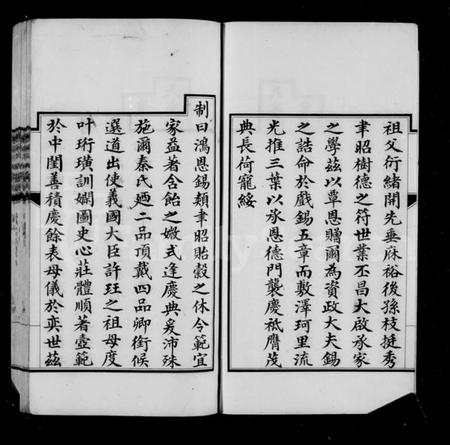 祖父衍緒開先垂麻裕後孫枝挺秀
聿昭樹德之符世業丕昌大啟承家
之學茲以覃恩贈爾為資政大夫錫
之誥命於戲錫五章而敷澤珂里流
光推三葉以承恩德門襲慶祗膺茂
典長荷寵綏
制曰鴻恩錫類聿昭貽穀之休令範宜
家益著含飴之媺式逢慶典爰沛殊
施爾秦氏廼二品頂戴四品卿銜候
選道出使義國大臣許玨之祖母度
叶珩璜訓嫻圖史心莊體順著壼範
於中閨善積慶餘表母儀於奕世茲